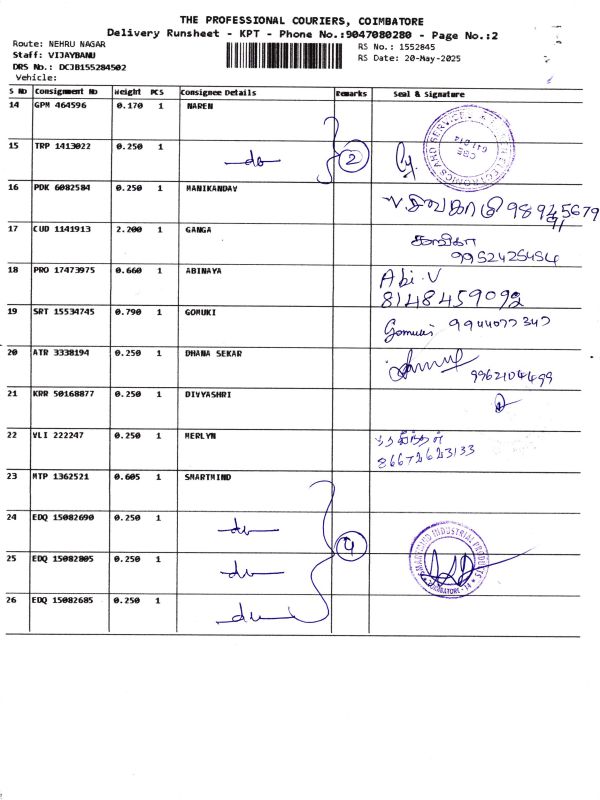 THE PROFESSIONAL COURIERS, COIMBATORE
Delivery Runsheet - KPT - Phone No.:9047080280 - Page No.:2
Route: NEHRU NAGAR
Staff: VIJAYBANU
DRS No.: DCJB155284502
Vehicle:
RS No.: 1552845
RS Date: 20-May-2025
S No Consignment No Weight PCS Consignee Details Remarks Seal & Signature
14 GPM 464596 0.170 1 NAREN
15 TRP 1413022 0.250 1 do 2
16 PDK 6082584 0.250 1 MANIKANDAV
17 CUD 1141913 2.200 1 GANGA காவிகா 9952425454
18 PRO 17473975 0.660 1 ABINAYA Abi.V 8148459092
19 SRT 15534745 0.790 1 GOMUKI Gomuki 9944077347
20 ATR 3338194 0.250 1 DHANA SEKAR 9962104499
21 KRR 50168877 0.250 1 DIVYASHRI
22 VLI 222247 0.250 1 MERLYN 86672623133
23 MTP 1362521 0.605 1 SMARTMIND
24 EDQ 15082690 0.250 1 do
25 EDQ 15082805 0.250 1 do 4
26 EDQ 15082685 0.250 1 do
SMARTMIND INDUSTRIAL PRODUCTS
COIMBATORE - 14